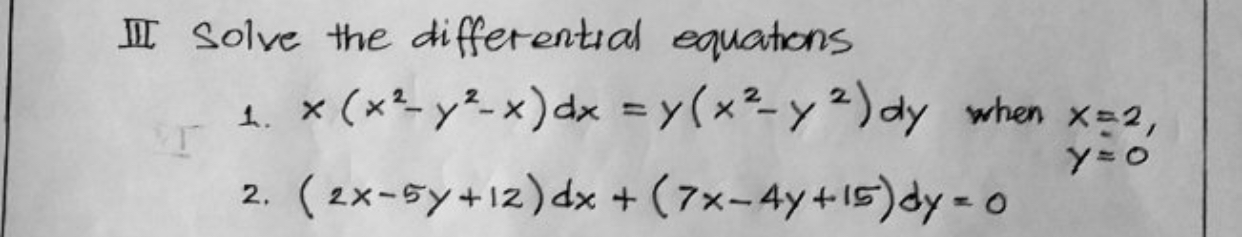 III Solve the differential equations
1. x (x²-y²-x)dx = y(x²-y²)dy when x=2,
y=0
2. (2x-5y+12)dx + (7x-4y+15)dy = 0